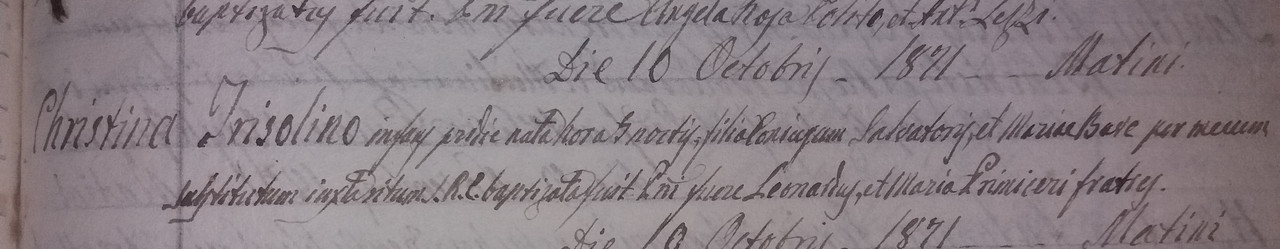 baptizatus fuit. Pni fuere Angela Rosa Coloso, et Ant.
Die 10 Octobris - 1871 - - Matini.
Christina Trisolino infans pridie nata hora 3 noctis, filia Coniugum Salvatoris, et Mariae Bave per me eum
substitutum iuxta ritum S. R. E. baptizata fuit. Pni fuere Leonardus, et Maria Primiceri fratres.
Die 10 Octobris - 1871 Matini